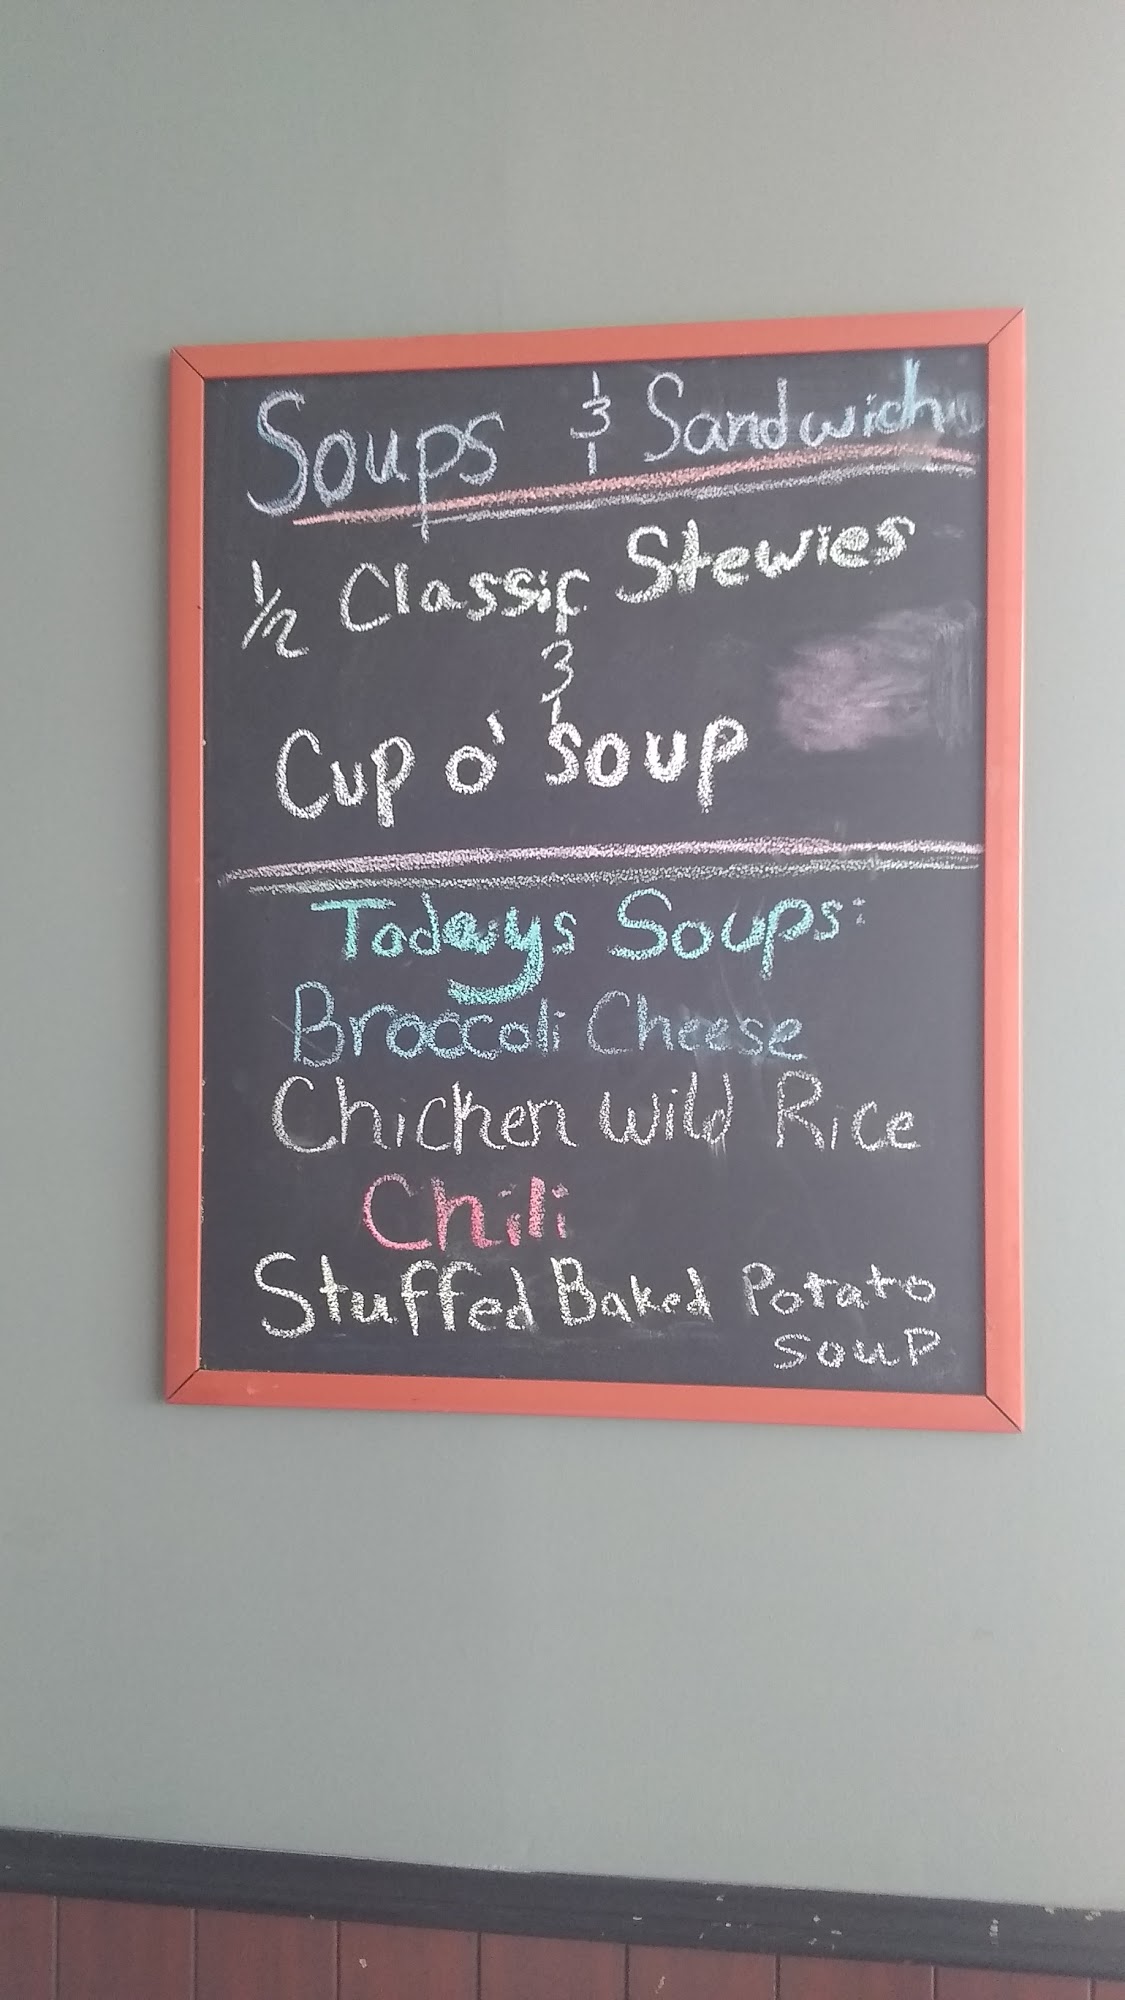 Soups & Sandwich
1/2 Classic Stewies
&
Cup o' Soup
Todays Soups:
Broccoli Cheese
Chicken Wild Rice
Chili
Stuffed Baked Potato
Soup